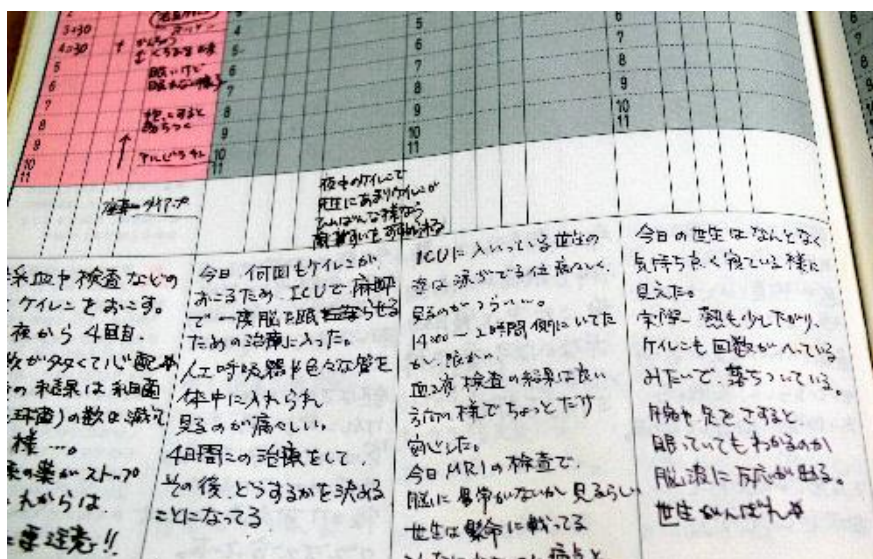 3:30
4:30
眠いけど
眠れない様子
抱っこすると
落ちつく
座薬ーダイアップ
夜中のケイレンで
先生にあまりケイレンが
ひんぱんな様なら
をすすめられる
採血や検査などの
ケイレンをおこす。
夜から4回目。
数が多くて心配
の結果は細菌
球菌)の数は減って
様…。
薬がストップ
れからは
要注意!!
今日何回もケイレンが
おこるため、ICUで麻酔
で一度脳を眠らせる
ための治療に入った。
人工呼吸器や色々な管を
体中に入れられ
見るのが痛々しい。
4日間この治療をして、
その後、どうするかを決める
ことになってる
ICUに入っている世生の
姿は涙がでる位痛々しく、
見るのがつらい…。
19:00〜2時間側にいてた
血液検査の結果は良い
方向の様でちょっとだけ
安心した。
今日MRIの検査で、
脳に異常がないか見るらしい
世生は懸命に戦ってる
今日の世生はなんとなく
気持ち良く寝ている様に
見えた。
実際、熱も少し下がり、
ケイレンも回数がへっている
みたいで、落ちついている。
腕や足をさすると
眠っていてもわかるのか
脳波に反応が出る。
世生がんばれ